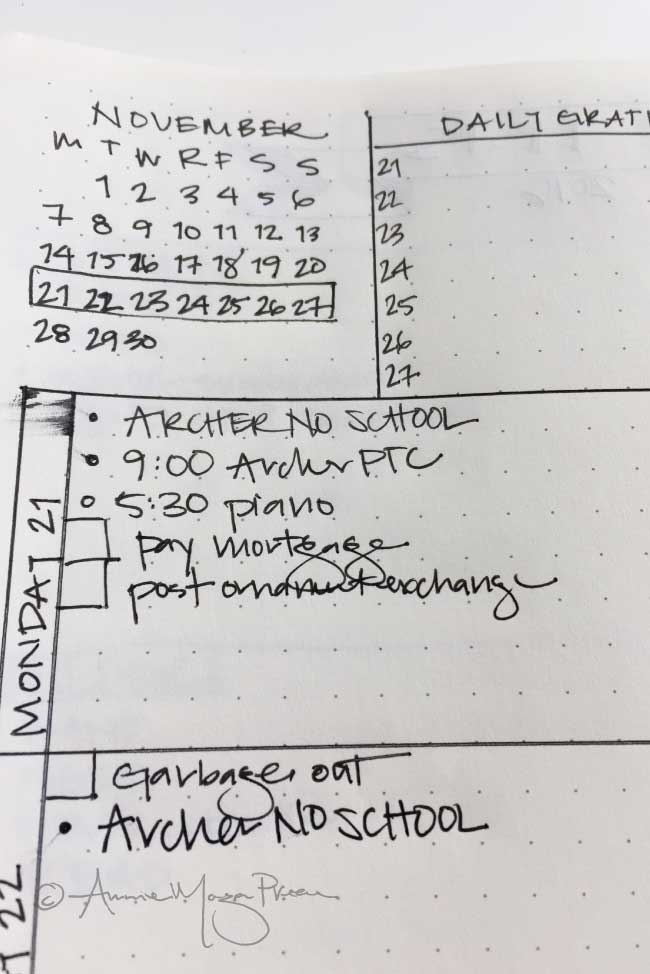 NOVEMBER
M T W R F S S
1 2 3 4 5 6
7 8 9 10 11 12 13
14 15 16 17 18 19 20
21 22 23 24 25 26 27
28 29 30
DAILY GRATI
21
22
23
24
25
26
27
MONDAY 21
• ARCHER NO SCHOOL
• 9:00 Archer PTC
○ 5:30 piano
pay mortgage
post ornament exchange
Garbage out
• Archer NO SCHOOL
22
© Annie